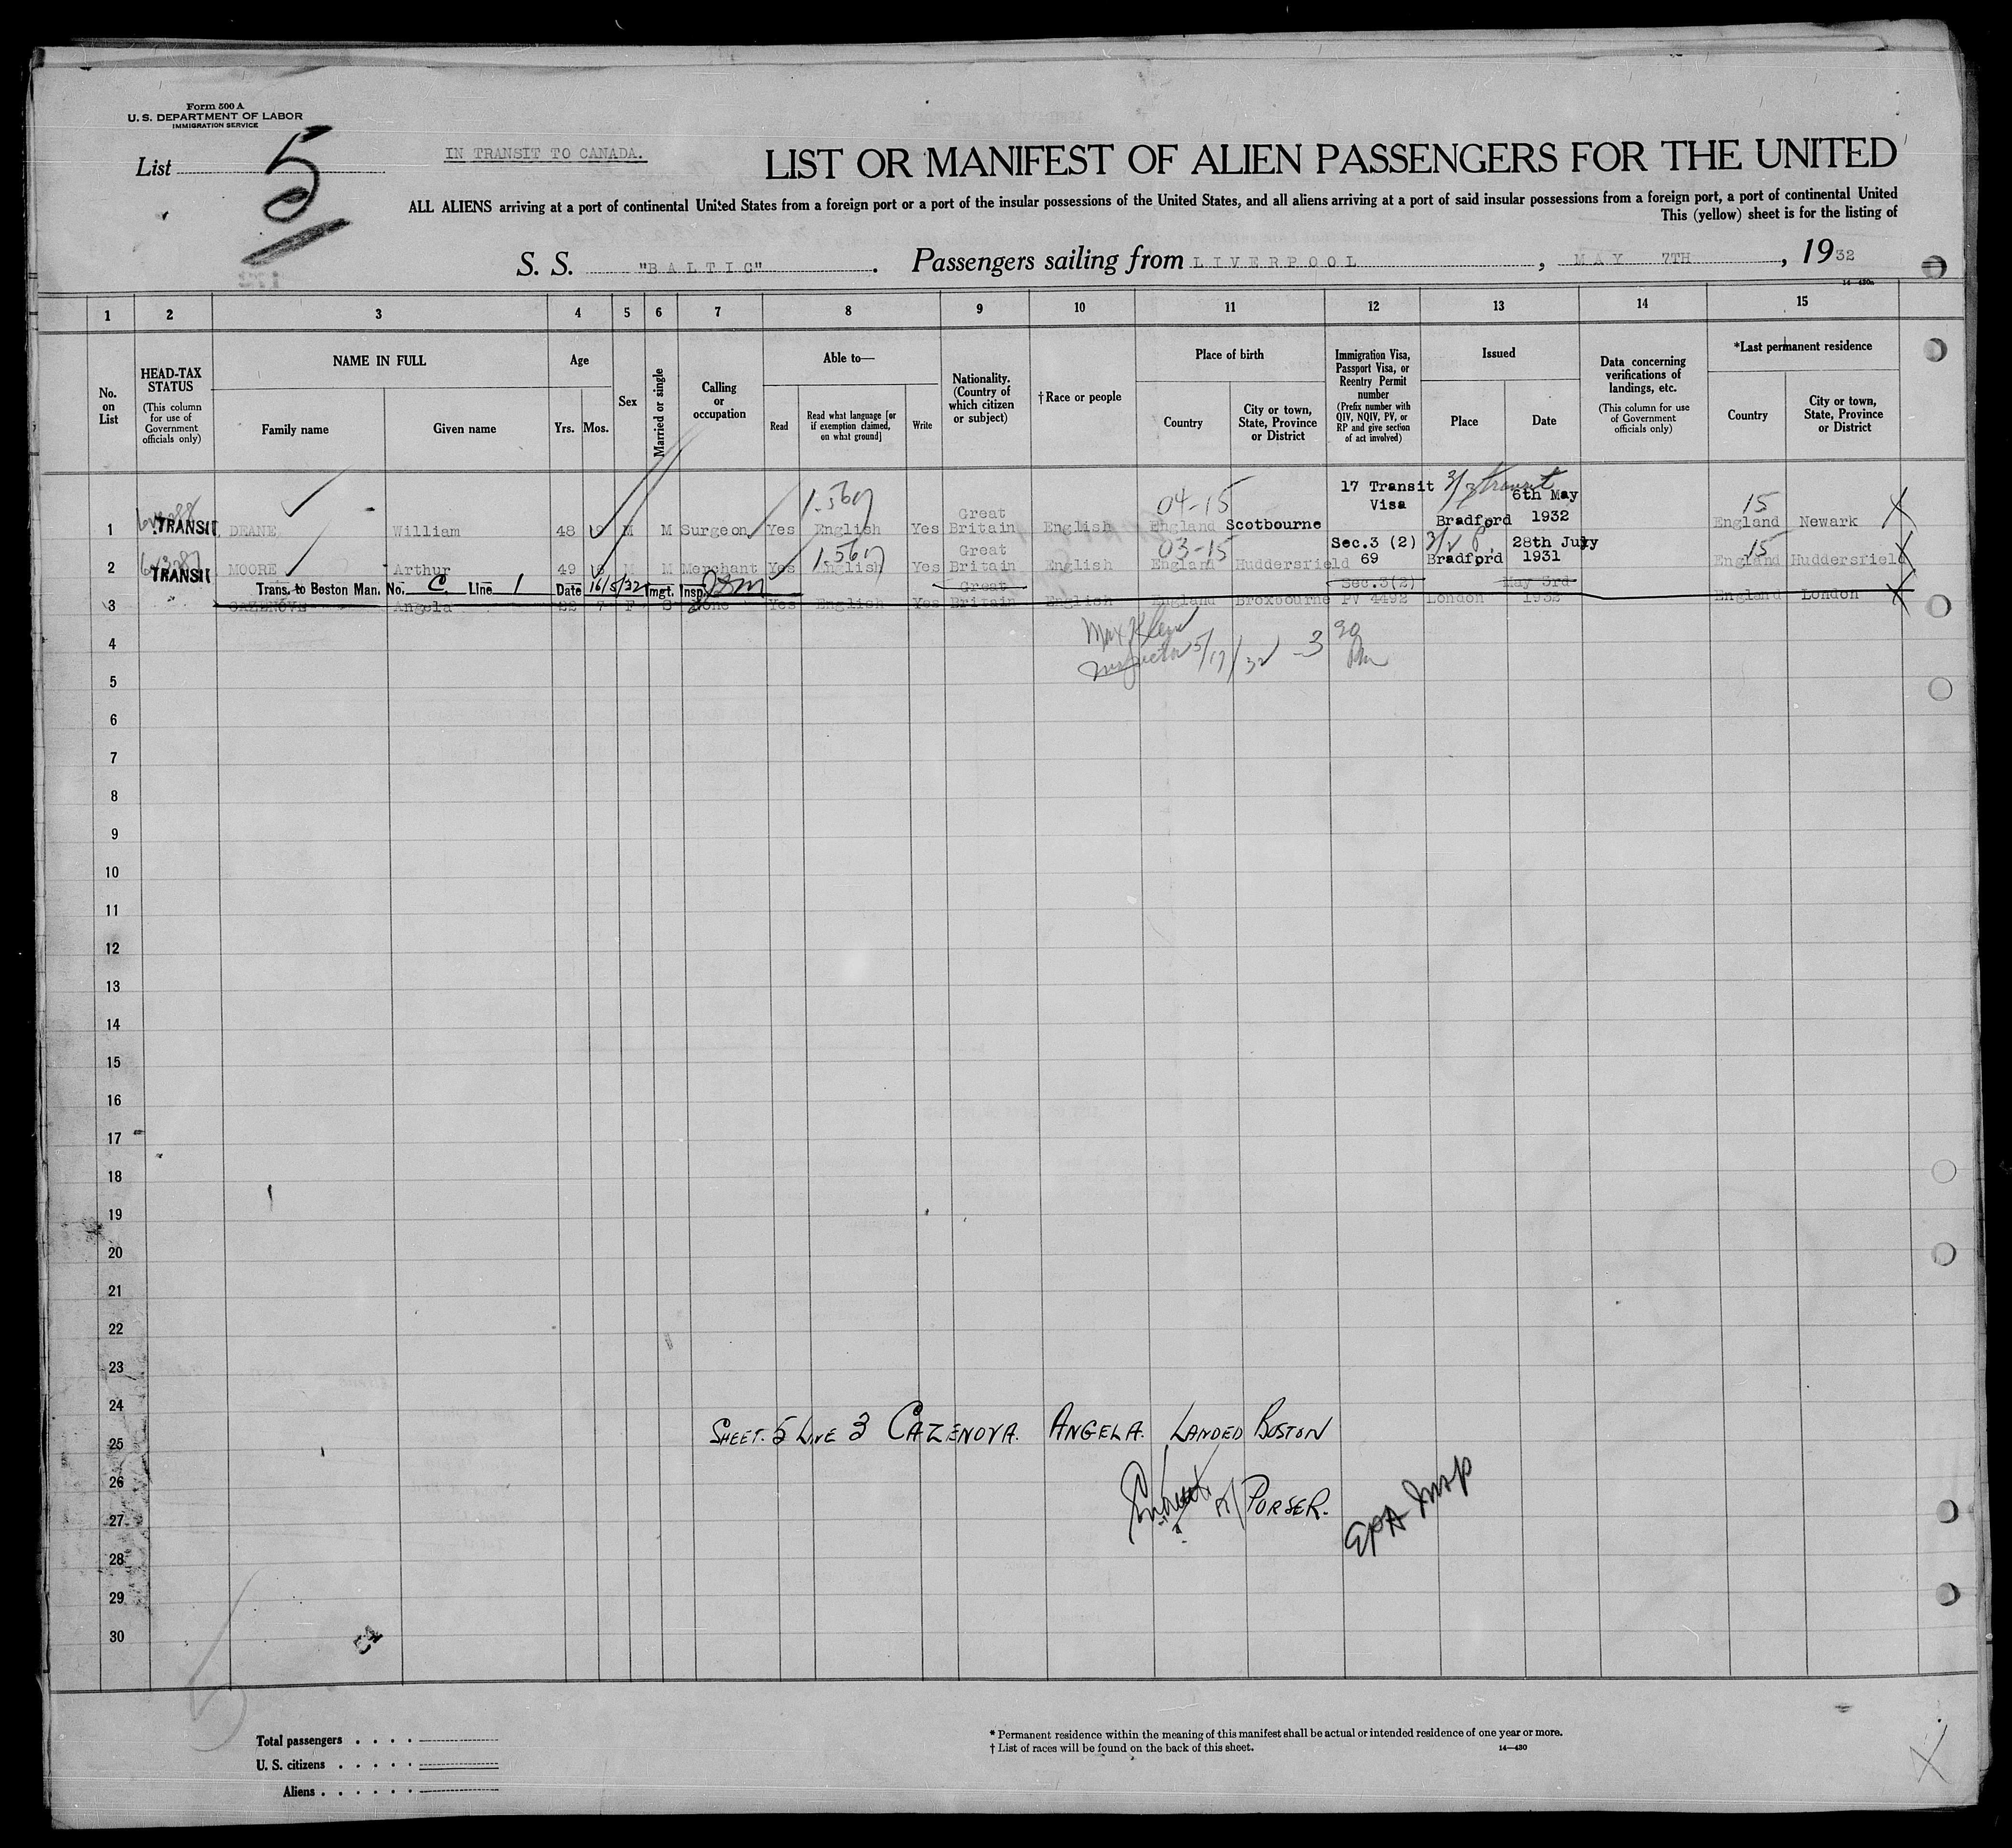 Form 500 A
U. S. DEPARTMENT OF LABOR
IMMIGRATION SERVICE
List 5
IN TRANSIT TO CANADA.
LIST OR MANIFEST OF ALIEN PASSENGERS FOR THE UNITED
ALL ALIENS arriving at a port of continental United States from a foreign port or a port of the insular possessions of the United States, and all aliens arriving at a port of said insular possessions from a foreign port, a port of continental United
This (yellow) sheet is for the listing of
S. S. "BALTIC". Passengers sailing from LIVERPOOL, MAY 7TH, 1932
14—430a
1 2 3 4 5 6 7 8 9 10 11 12 13 14 15
No. on List
HEAD-TAX STATUS (This column for use of Government officials only)
NAME IN FULL
Family name Given name
Age
Yrs. Mos.
Sex
Married or single
Calling or occupation
Able to—
Read Read what language [or if exemption claimed, on what ground] Write
Nationality. (Country of which citizen or subject)
†Race or people
Place of birth
Country City or town, State, Province or District
Immigration Visa, Passport Visa, or Reentry Permit number (Prefix number with QIV, NQIV, PV, or RP and give section of act involved)
Issued
Place Date
Data concerning verifications of landings, etc. (This column for use of Government officials only)
*Last permanent residence
Country City or town, State, Province or District
04-15 17 Transit Visa transit 6th May 1932 15
1 TRANSIT DEANE William 48 M M Surgeon Yes English Yes Great Britain English England Scotbourne Bradford England Newark
03-15 Sec.3 (2) 28th July 15
2 TRANSIT MOORE Arthur 49 M M Merchant Yes English Yes Great Britain English England Huddersfield 69 Bradford 1931 England Huddersfield
Trans. to Boston Man. No. C Line 1 Date 16/5/32 Imgt. Insp.
3 CAZENOVE Angela 22 7 F S None Yes English Yes Great Britain English England Broxbourne Sec.3(2) PV 4492 London May 3rd 1932 England London
Inspector 5/17/32 - 3 30 Pm
4
5
6
7
8
9
10
11
12
13
14
15
16
17
18
19
20
21
22
23
24
25
26
27
28
29
30
SHEET. 5 LINE 3 CAZENOVA. ANGELA. LANDED BOSTON
PURSER.
EPA Insp
Total passengers
U. S. citizens
Aliens
* Permanent residence within the meaning of this manifest shall be actual or intended residence of one year or more.
† List of races will be found on the back of this sheet.
14—430